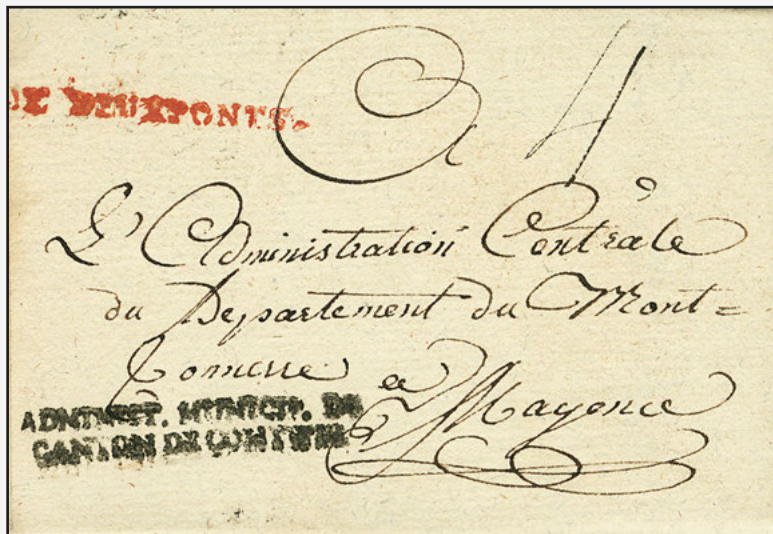 DE DEUXPONTS.
A 4
L'Administration Centrale
du Departement du Mont=
Tonnerre a Mayence
ADMINIST. MUNICIP. DU
CANTON DE